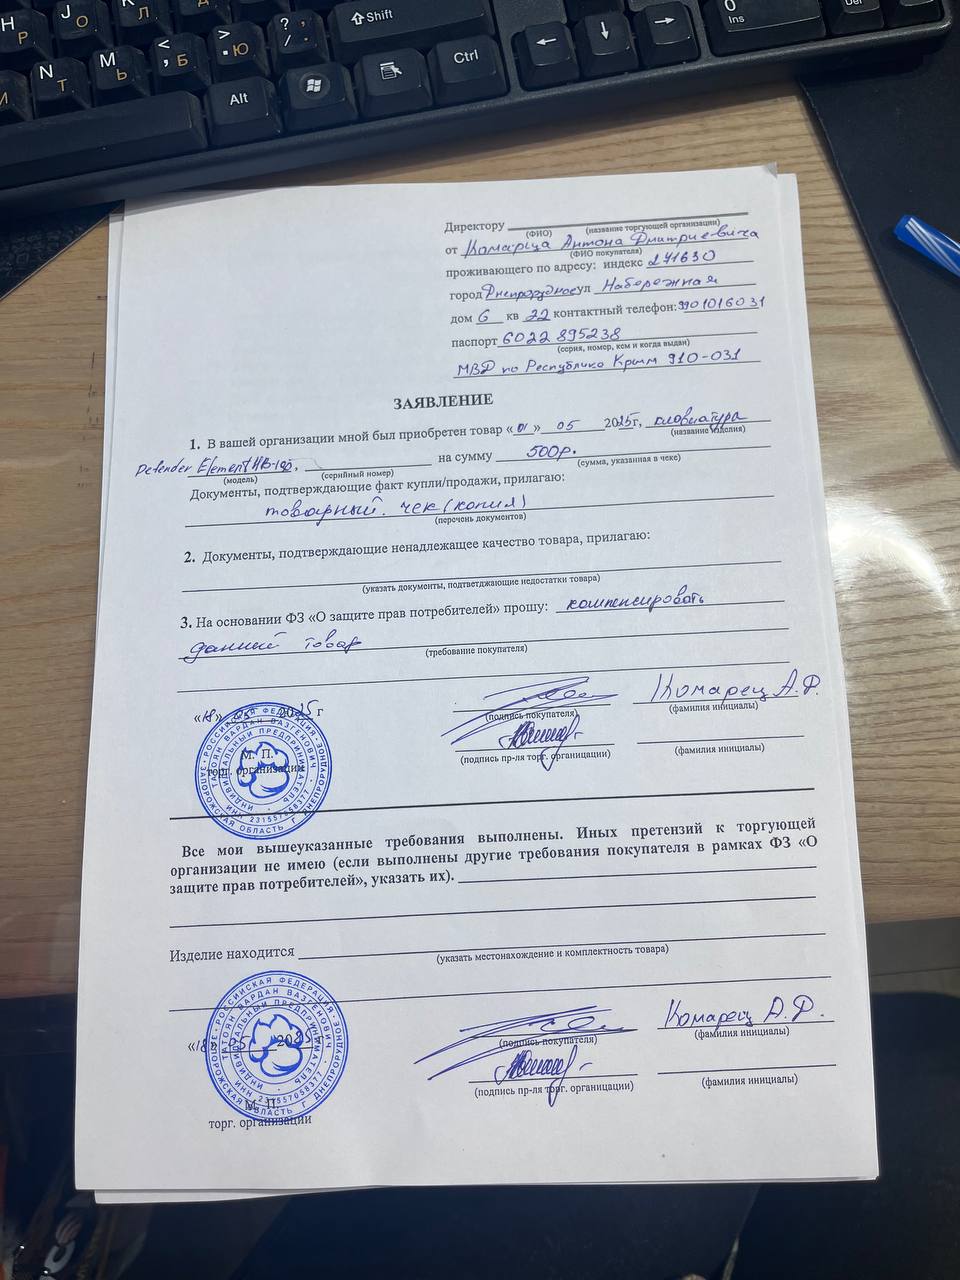 J О
K Л
L Д
? ,
/ .
Shift
0
Ins
Del
Н Р
N Т
M Ь
< , Б
> . Ю
Alt
Ctrl
Директору
(ФИО) (название торгующей организации)
от Комарца Антона Дмитриевича
(ФИО покупателя)
проживающего по адресу: индекс 271630
город Днепрорудное ул Набережная
дом 6 кв 22 контактный телефон: 7901016031
паспорт 6022 895238
(серия, номер, кем и когда выдан)
МВД по Республике Крым 910-031
ЗАЯВЛЕНИЕ
1. В вашей организации мной был приобретен товар «01» 05 2025г, клавиатура
(название изделия)
Defender Element HB-190, на сумму 500р.
(модель) (серийный номер) (сумма, указанная в чеке)
Документы, подтверждающие факт купли/продажи, прилагаю:
товарный. чек (копия)
(перечень документов)
2. Документы, подтверждающие ненадлежащее качество товара, прилагаю:
(указать документы, подтветджающие недостатки товара)
3. На основании ФЗ «О защите прав потребителей» прошу: компенсировать
даный товар
(требование покупателя)
«18» 05 2025 г
(подпись покупателя)
Комарец А.Д.
(фамилия инициалы)
М. П.
торг. организации
(подпись пр-ля торг. органицации)
(фамилия инициалы)
РОССИЙСКАЯ ФЕДЕРАЦИЯ ЗАПОРОЖСКАЯ ОБЛАСТЬ Г. ДНЕПРОРУДНОЕ
ТАТОЯН ВАРДАН ВАЗГЕНОВИЧ
ИНДИВИДУАЛЬНЫЙ ПРЕДПРИНИМАТЕЛЬ
ИНН 231557058377
Все мои вышеуказанные требования выполнены. Иных претензий к торгующей
организации не имею (если выполнены другие требования покупателя в рамках ФЗ «О
защите прав потребителей», указать их).
Изделие находится
(указать местонахождение и комплектность товара)
«18» 05 2025
(подпись покупателя)
Комарец А.Д.
(фамилия инициалы)
(подпись пр-ля торг. органицации)
(фамилия инициалы)
М. П.
торг. организации
РОССИЙСКАЯ ФЕДЕРАЦИЯ ЗАПОРОЖСКАЯ ОБЛАСТЬ Г. ДНЕПРОРУДНОЕ
ТАТОЯН ВАРДАН ВАЗГЕНОВИЧ
ИНДИВИДУАЛЬНЫЙ ПРЕДПРИНИМАТЕЛЬ
ИНН 231557058377